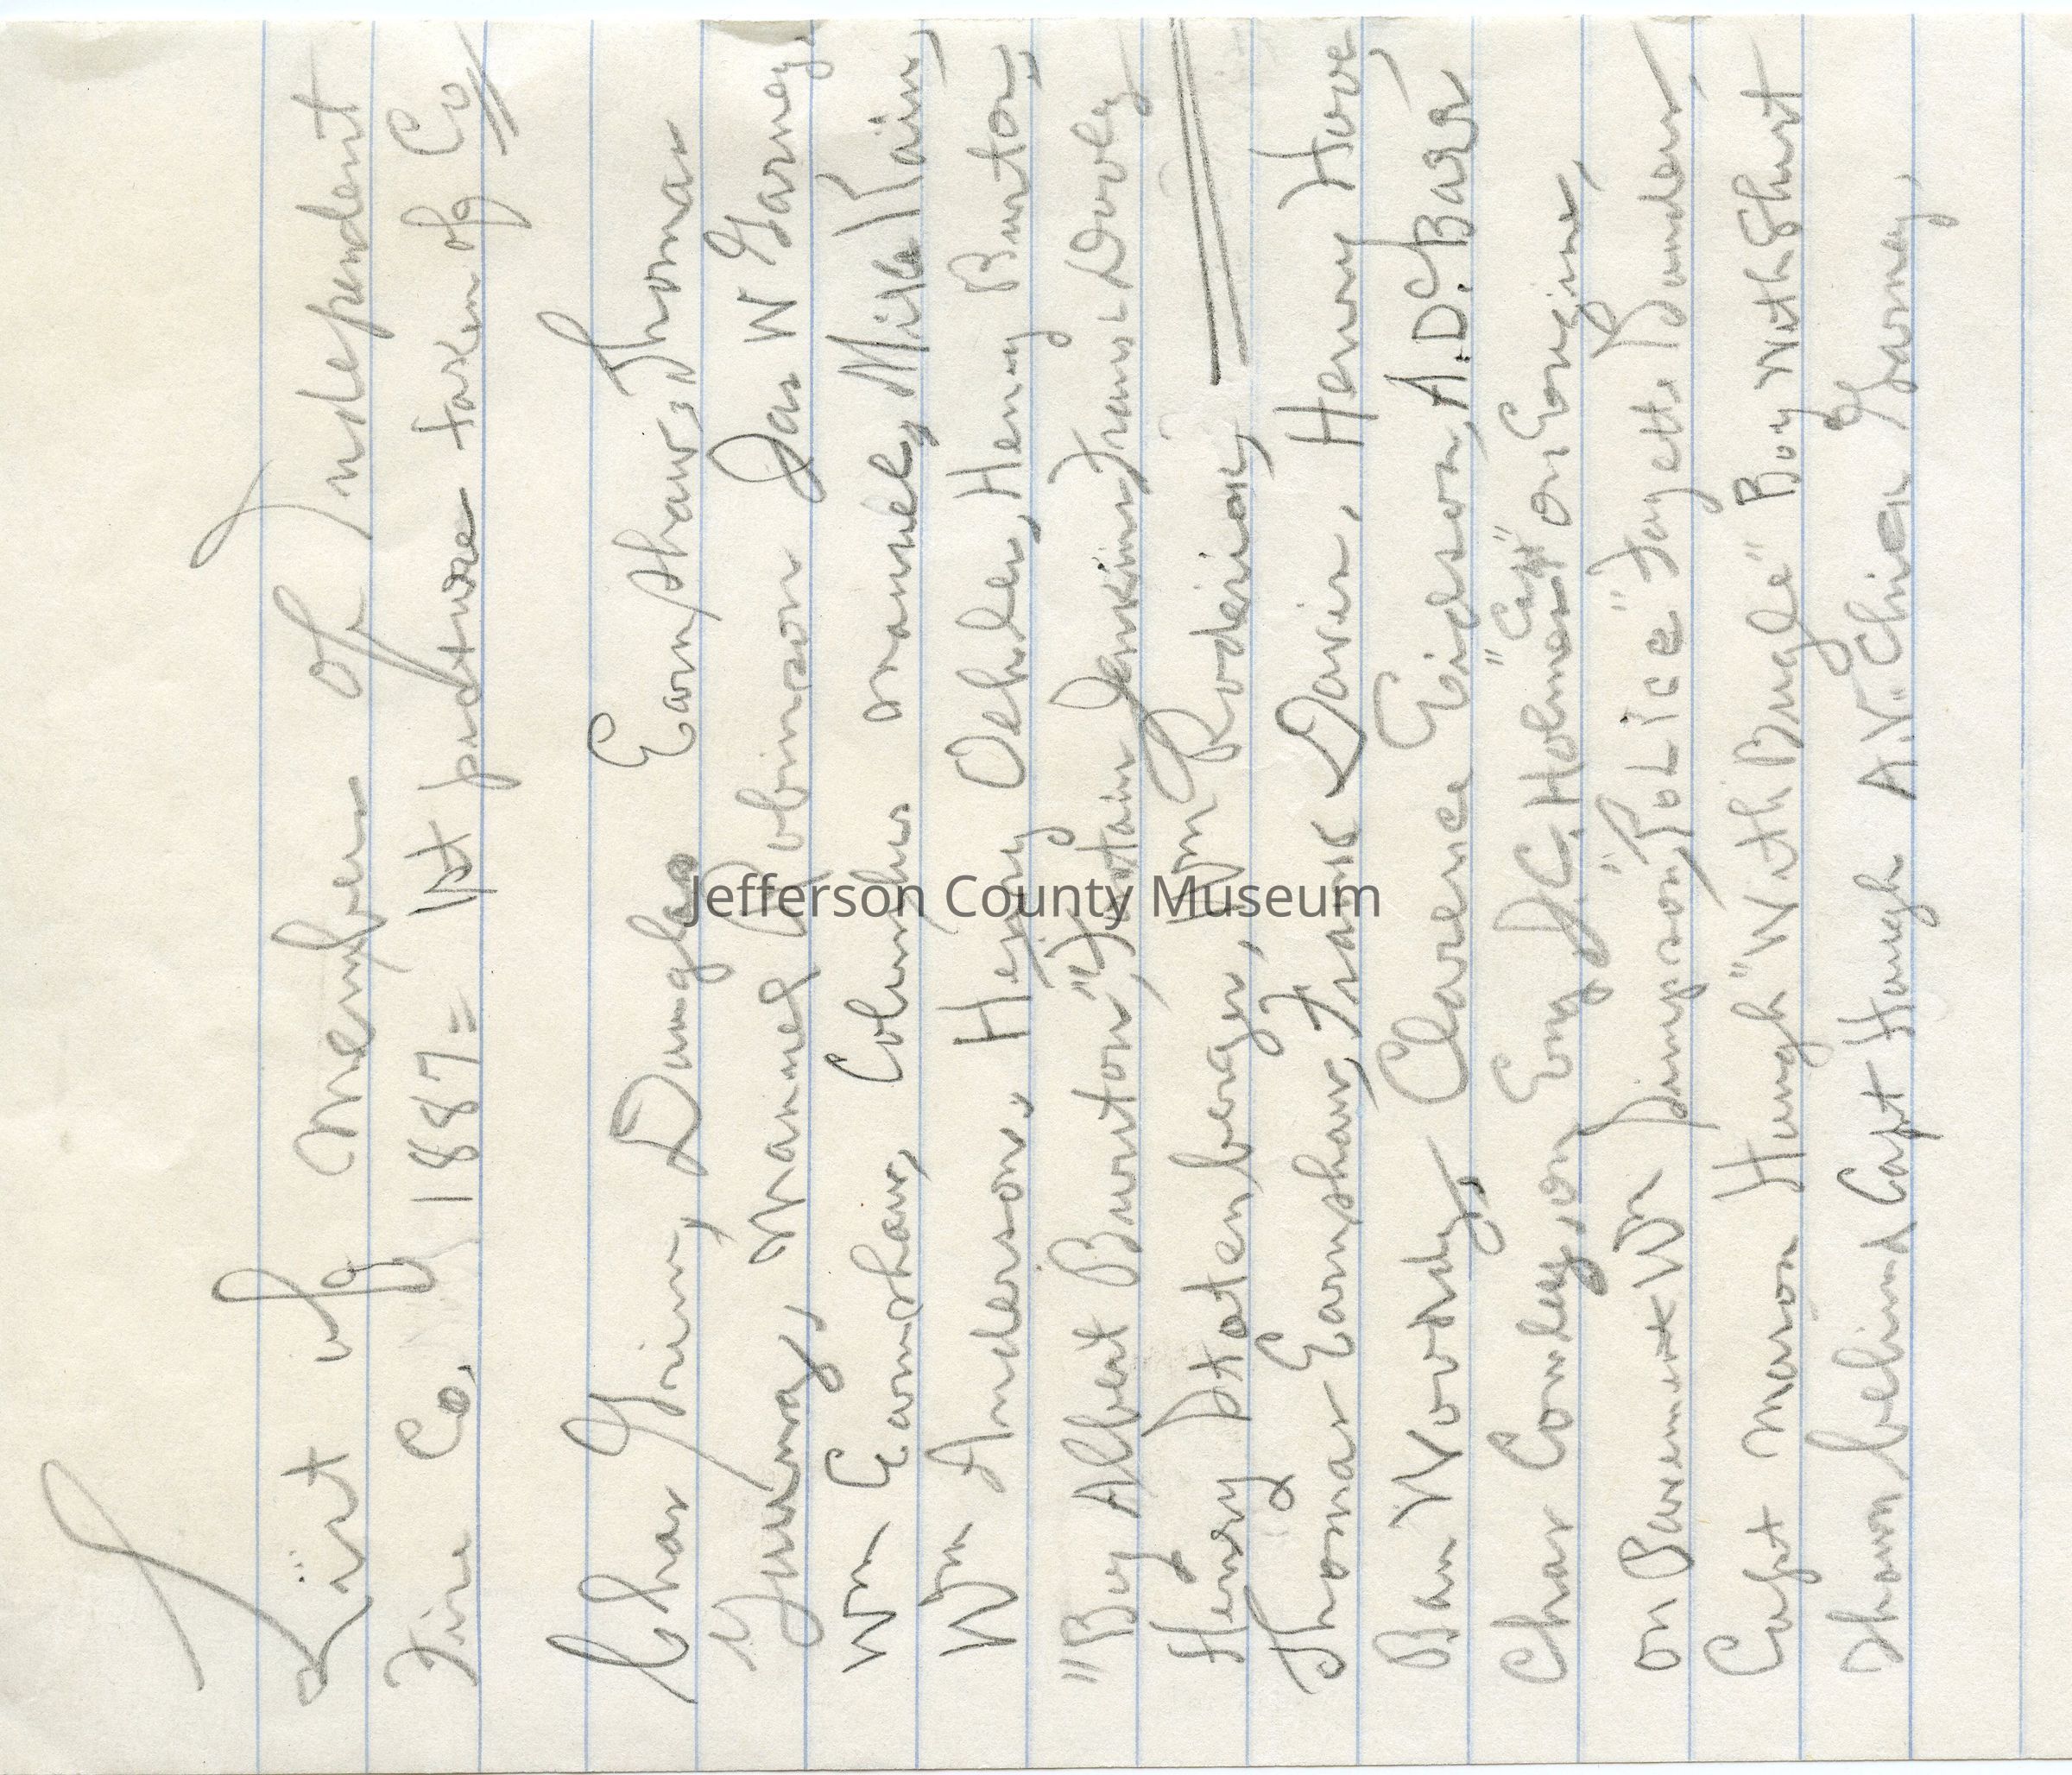 List of Members of Independent
Fire Co, 1887 = 1st picture taken of Co
Chas Grim, Douglas Earnshaw, Thomas
Gummy, Manuel Robinson Jas W Garney,
Wm Earnshaw, Columbus Manuel, Mike Kain,
Wm Anderson, Henry Oehler, Henry Burton,
"Boy Albert Burton", Jenkins, Frank Dooley
Henry Statenberger, Wm Roderick,
Thomas Earnshaw, Frank Davis, Henry Hove,
Bam Woordy, Clarence Eidson, A.D. Barr
Chas Comley, on Eng, J.C. Holmes "Capt" on Engine,
on Basement Wm Simpson, "Police" Fayette Saunders,
Capt Mason Hough "With Bugle" Boy With Shirt
Sham behind Capt Hough A.V. "Chick Garney,
Jefferson County Museum